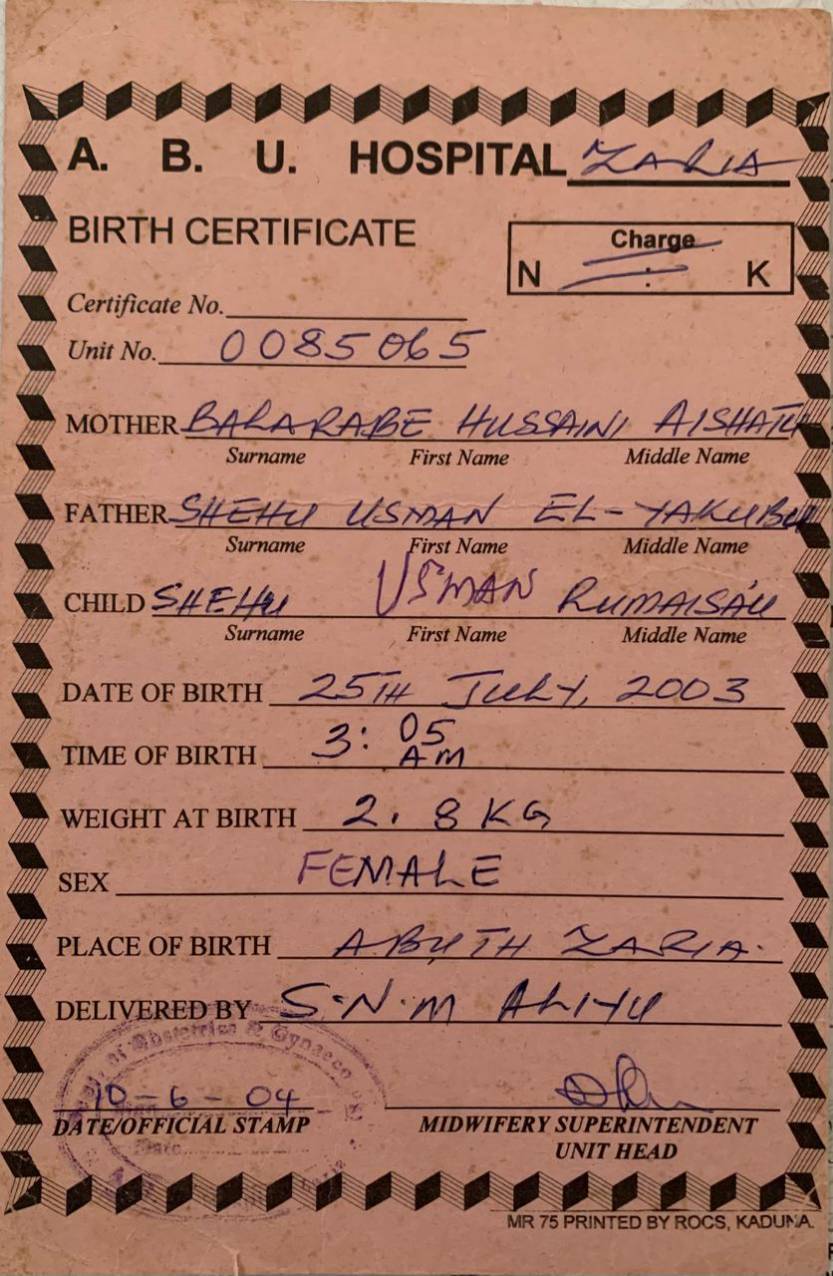 A. B. U. HOSPITAL ZARIA
BIRTH CERTIFICATE
Charge
N : K
Certificate No.
Unit No. 0085065
MOTHER BARARABE HUSSAINI AISHATU
Surname First Name Middle Name
FATHER SHEHU USMAN EL-YAKUBU
Surname First Name Middle Name
CHILD SHEHU USMAN RUMAISA'U
Surname First Name Middle Name
DATE OF BIRTH 25TH JULY, 2003
TIME OF BIRTH 3:05 AM
WEIGHT AT BIRTH 2.8KG
SEX FEMALE
PLACE OF BIRTH ABUTH ZARIA.
DELIVERED BY S.N.M ALIYU
of Obstetrics & Gynaeco
10-6-04
DATE/OFFICIAL STAMP MIDWIFERY SUPERINTENDENT
Date
UNIT HEAD
MR 75 PRINTED BY ROCS, KADUNA.